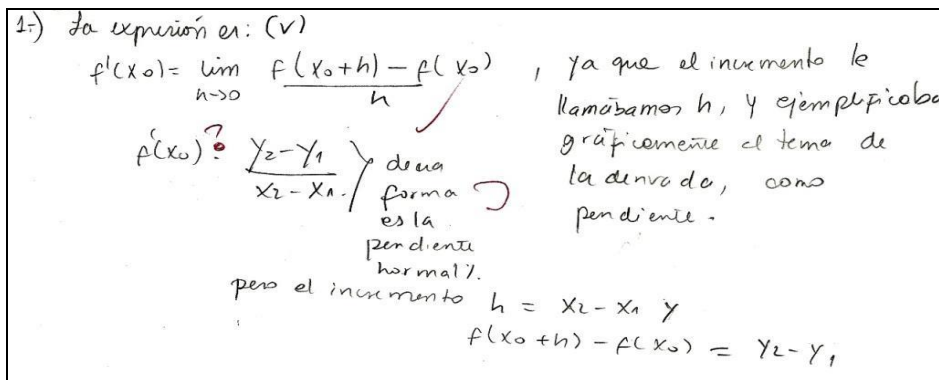 1.-) La expresión es: (V)
f'(x₀) = lim h->0 f(x₀+h) - f(x₀) / h , ya que el incremento le
llamábamos h, y ejemplificaba
gráficamente el tema de
la derivada, como
pendiente.
f'(x₀) ? y₂-y₁ / x₂-x₁. de una
forma
es la
pendiente
normal.
pero el incremento h = x₂-x₁ y
f(x₀+h) - f(x₀) = y₂-y₁